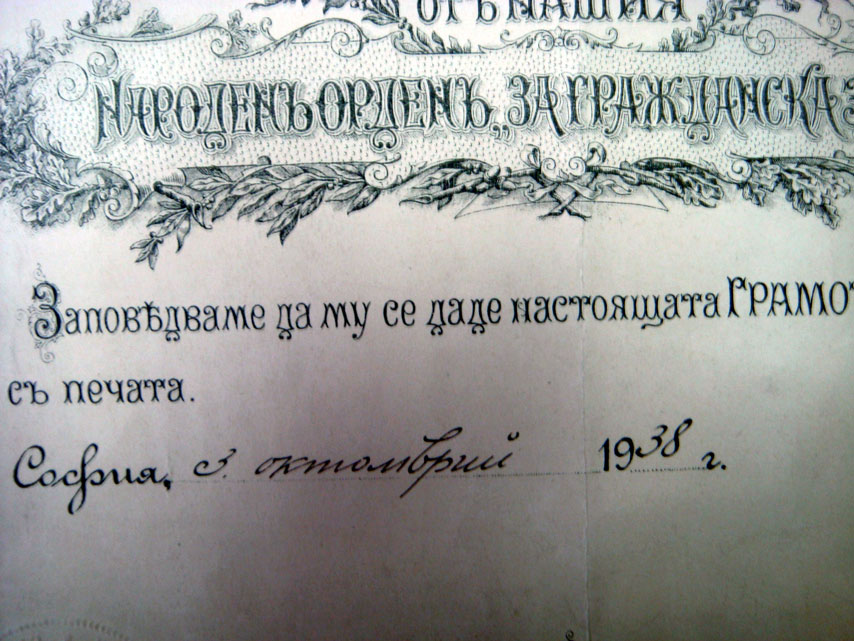 ОТЪ НАШИЯ
НАРОДЕНЪ ОРДЕНЪ „ЗА ГРАЖДАНСКА
Заповѣдваме да му се даде настоящата ГРАМО
съ печата.
София, 3. октомврий 1938 г.